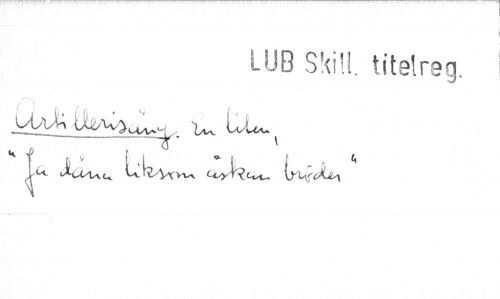 LUB Skill. titelreg.
Artillerisång. En liten,
"Ja dåna liksom åskan bröder"